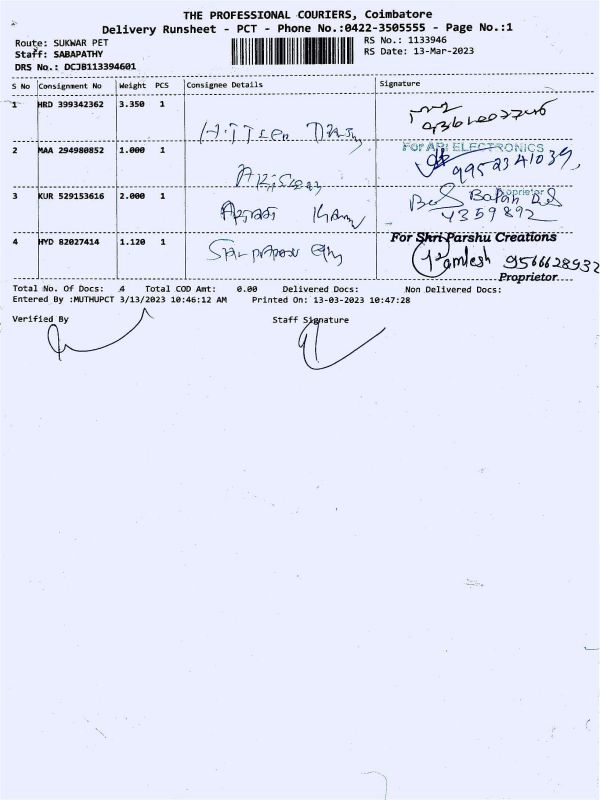 THE PROFESSIONAL COURIERS, Coimbatore
Delivery Runsheet - PCT - Phone No.:0422-3505555 - Page No.:1
Route: SUKWAR PET
RS No.: 1133946
Staff: SABAPATHY
RS Date: 13-Mar-2023
DRS No.: DCJB113394601
S No Consignment No Weight PCS Consignee Details Signature
1 HRD 399342362 3.350 1
2 MAA 294980852 1.000 1
For ARI ELECTRONICS
9952341039
3 KUR 529153616 2.000 1
Proprietor
4359892
4 HYD 82027414 1.120 1
For Shri Parshu Creations
9566628932
Proprietor
Total No. Of Docs: 4 Total COD Amt: 0.00 Delivered Docs: Non Delivered Docs:
Entered By :MUTHUPCT 3/13/2023 10:46:12 AM Printed On: 13-03-2023 10:47:28
Verified By Staff Signature